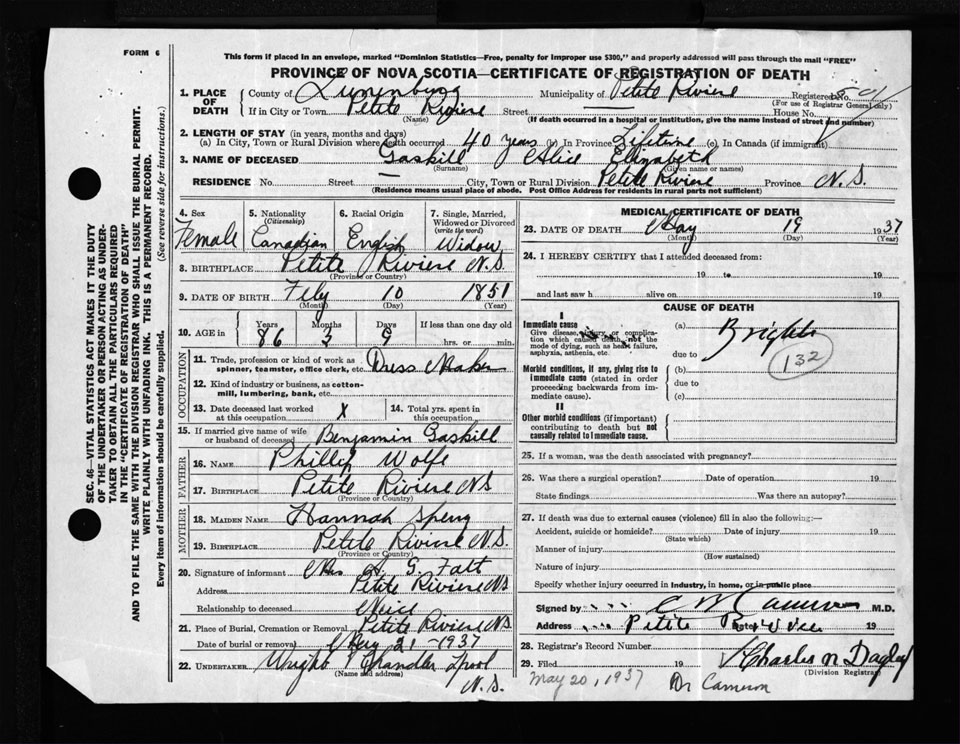 FORM 6
This form if placed in an envelope, marked "Dominion Statistics—Free, penalty for improper use $300," and properly addressed will pass through the mail "FREE"
PROVINCE OF NOVA SCOTIA—CERTIFICATE OF REGISTRATION OF DEATH
1. PLACE OF DEATH County of Lunenburg Municipality of Petite Riviere Registered No.
(For use of Registrar General only)
If in City or Town Petite Riviere Street House No.
(Name) (If death occurred in a hospital or institution, give name instead of street and number)
2. LENGTH OF STAY (in years, months and days)
(a) In City, Town or Rural Division where death occurred 40 years (b) In Province Lifetime (c) In Canada (if immigrant)
3. NAME OF DECEASED Gaskill Alice Elizabeth
(Surname) (Given name or names)
RESIDENCE No. — Street City, Town or Rural Division Petite Riviere Province N.S.
(Residence means usual place of abode. Post Office Address for residents in rural parts not sufficient)
4. Sex 5. Nationality 6. Racial Origin 7. Single, Married, Widowed or Divorced
(Citizenship) (write the word)
Female Canadian English Widow
8. BIRTHPLACE Petite Riviere N.S.
(Province or Country)
9. DATE OF BIRTH Feby 10 1851
(Month) (Day) (Year)
10. AGE in Years Months Days If less than one day old
86 3 9 hrs. or min.
OCCUPATION
11. Trade, profession or kind of work as spinner, teamster, office clerk, etc. Dress Maker
12. Kind of industry or business, as cotton-mill, lumbering, bank, etc.
13. Date deceased last worked at this occupation X 14. Total yrs. spent in this occupation
15. If married give name of wife or husband of deceased Benjamin Gaskill
FATHER
16. NAME Phillip Wolfe
17. BIRTHPLACE Petite Riviere NS
(Province or Country)
MOTHER
18. MAIDEN NAME Hannah Sperry
19. BIRTHPLACE Petite Riviere N.S.
(Province or Country)
20. Signature of informant Mrs G. Falt
Address Petite Riviere NS
Relationship to deceased Neice
21. Place of Burial, Cremation or Removal Petite Riviere NS
Date of burial or removal May 21 - 1937
22. UNDERTAKER Wright Chandler Lpool
(Name and address) N.S.
MEDICAL CERTIFICATE OF DEATH
23. DATE OF DEATH May 19 1937
(Month) (Day) (Year)
24. I HEREBY CERTIFY that I attended deceased from:
19 to 19
and last saw h alive on 19
CAUSE OF DEATH
I
Immediate cause (a) Brights
Give disease, injury, or complication which caused death, not the mode of dying, such as heart failure, asphyxia, asthenia, etc. due to
132
Morbid conditions, if any, giving rise to immediate cause (stated in order proceeding backwards from immediate cause). (b)
due to
(c)
II
Other morbid conditions (if important) contributing to death but not causally related to immediate cause.
25. If a woman, was the death associated with pregnancy?
26. Was there a surgical operation? Date of operation 19
State findings Was there an autopsy?
27. If death was due to external causes (violence) fill in also the following:—
Accident, suicide or homicide? Date of injury 19
(State which)
Manner of injury
(How sustained)
Nature of injury
Specify whether injury occurred in Industry, in home, or in public place
Signed by C M Cameron M.D.
Address Petite Riviere Date 19
28. Registrar's Record Number
29. Filed 19 Charles N Dagley
(Division Registrar)
May 20, 1937 Dr Cameron
SEC. 46—VITAL STATISTICS ACT MAKES IT THE DUTY
OF THE UNDERTAKER OR PERSON ACTING AS UNDER-
TAKER TO OBTAIN ALL THE PARTICULARS REQUIRED
IN THE "CERTIFICATE OF REGISTRATION OF DEATH"
AND TO FILE THE SAME WITH THE DIVISION REGISTRAR WHO SHALL ISSUE THE BURIAL PERMIT.
WRITE PLAINLY WITH UNFADING INK. THIS IS A PERMANENT RECORD.
Every item of information should be carefully supplied. (See reverse side for instructions.)